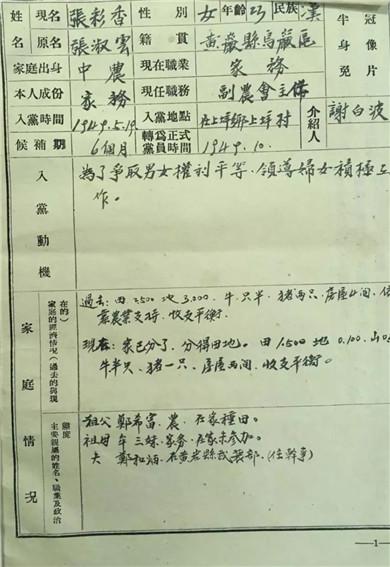 姓名 現名 張彩香 性別 女 年齡 23 民族 漢
原名 張淑雲 籍貫 黃巖縣烏巖區
家庭出身 中農 現在職業 家務
本人成份 家務 現任職務 副農會主席
入黨時間 1949.5.19. 入黨地點 在上垟鄉上垟村
候補期 6個月 轉為正式黨員時間 1949.10.
介紹人 謝白波
半身免冠像片
入黨動機
為了爭取男女權利平等，領導婦女積極工
作。
家庭情況
家庭的經濟情況（過去的與現在的）
過去：田7.500 地3.000，牛一只半，猪兩只，房屋4間，
靠農業支持，收支平衡。
現在：家已分了，分得田地。田1.500 地0.100，
牛半只，猪一只，房屋兩間，收支平衡。
主要親屬的姓名、職業及政治態度
祖父 鄭希富，農，在家種田。
祖母 牟三妹，家务，在家未參加。
夫 鄭和滿，在黃岩縣武裝部，(任幹事)
—1—